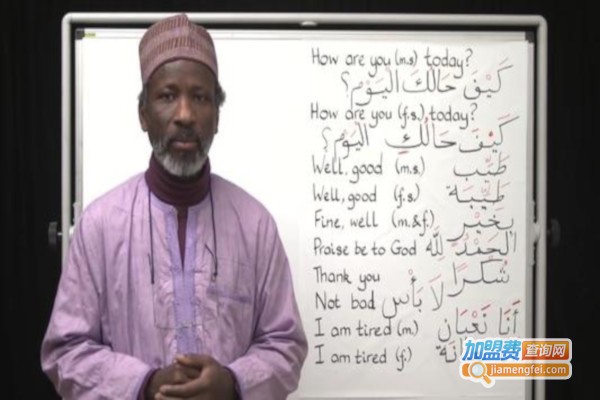 How are you (m.s) today?
كَيْفَ حَالُكَ الْيَوْم؟
How are you (f.s.) today?
كَيْفَ حَالُكِ الْيَوْم؟
Well, good (m.s.) طَيِّب
Well, good (f.s) طَيِّبَة
Fine, well (m.&f.) بِخَيْرٍ
Praise be to God الْحَمْدُ لِلَّه
Thank you شُكْرًا
Not bad لَا بَأْس
I am tired (m.) أَنَا تَعْبَان
I am tired (f.)
加盟费查询网
jiamengfei.com